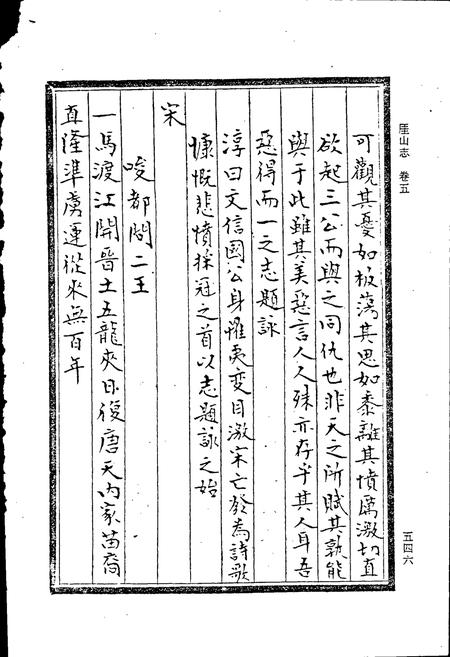 厓山志 卷五
可觀其憂如板蕩其思如黍離其憤厲激切直
欲起三公而與之同仇也非天之所賦其孰能
與于此雖其美惡言人人殊亦存乎其人耳吾
惡得而一之志題詠
淳曰文信國公身罹夷變目激宋亡發為詩歌
慷慨悲憤採冠之首以志題詠之始
宋
唆都問二王
一馬渡江開晉土五龍夾日復唐天內家苗裔
真隆準虜運從來無百年
五四六